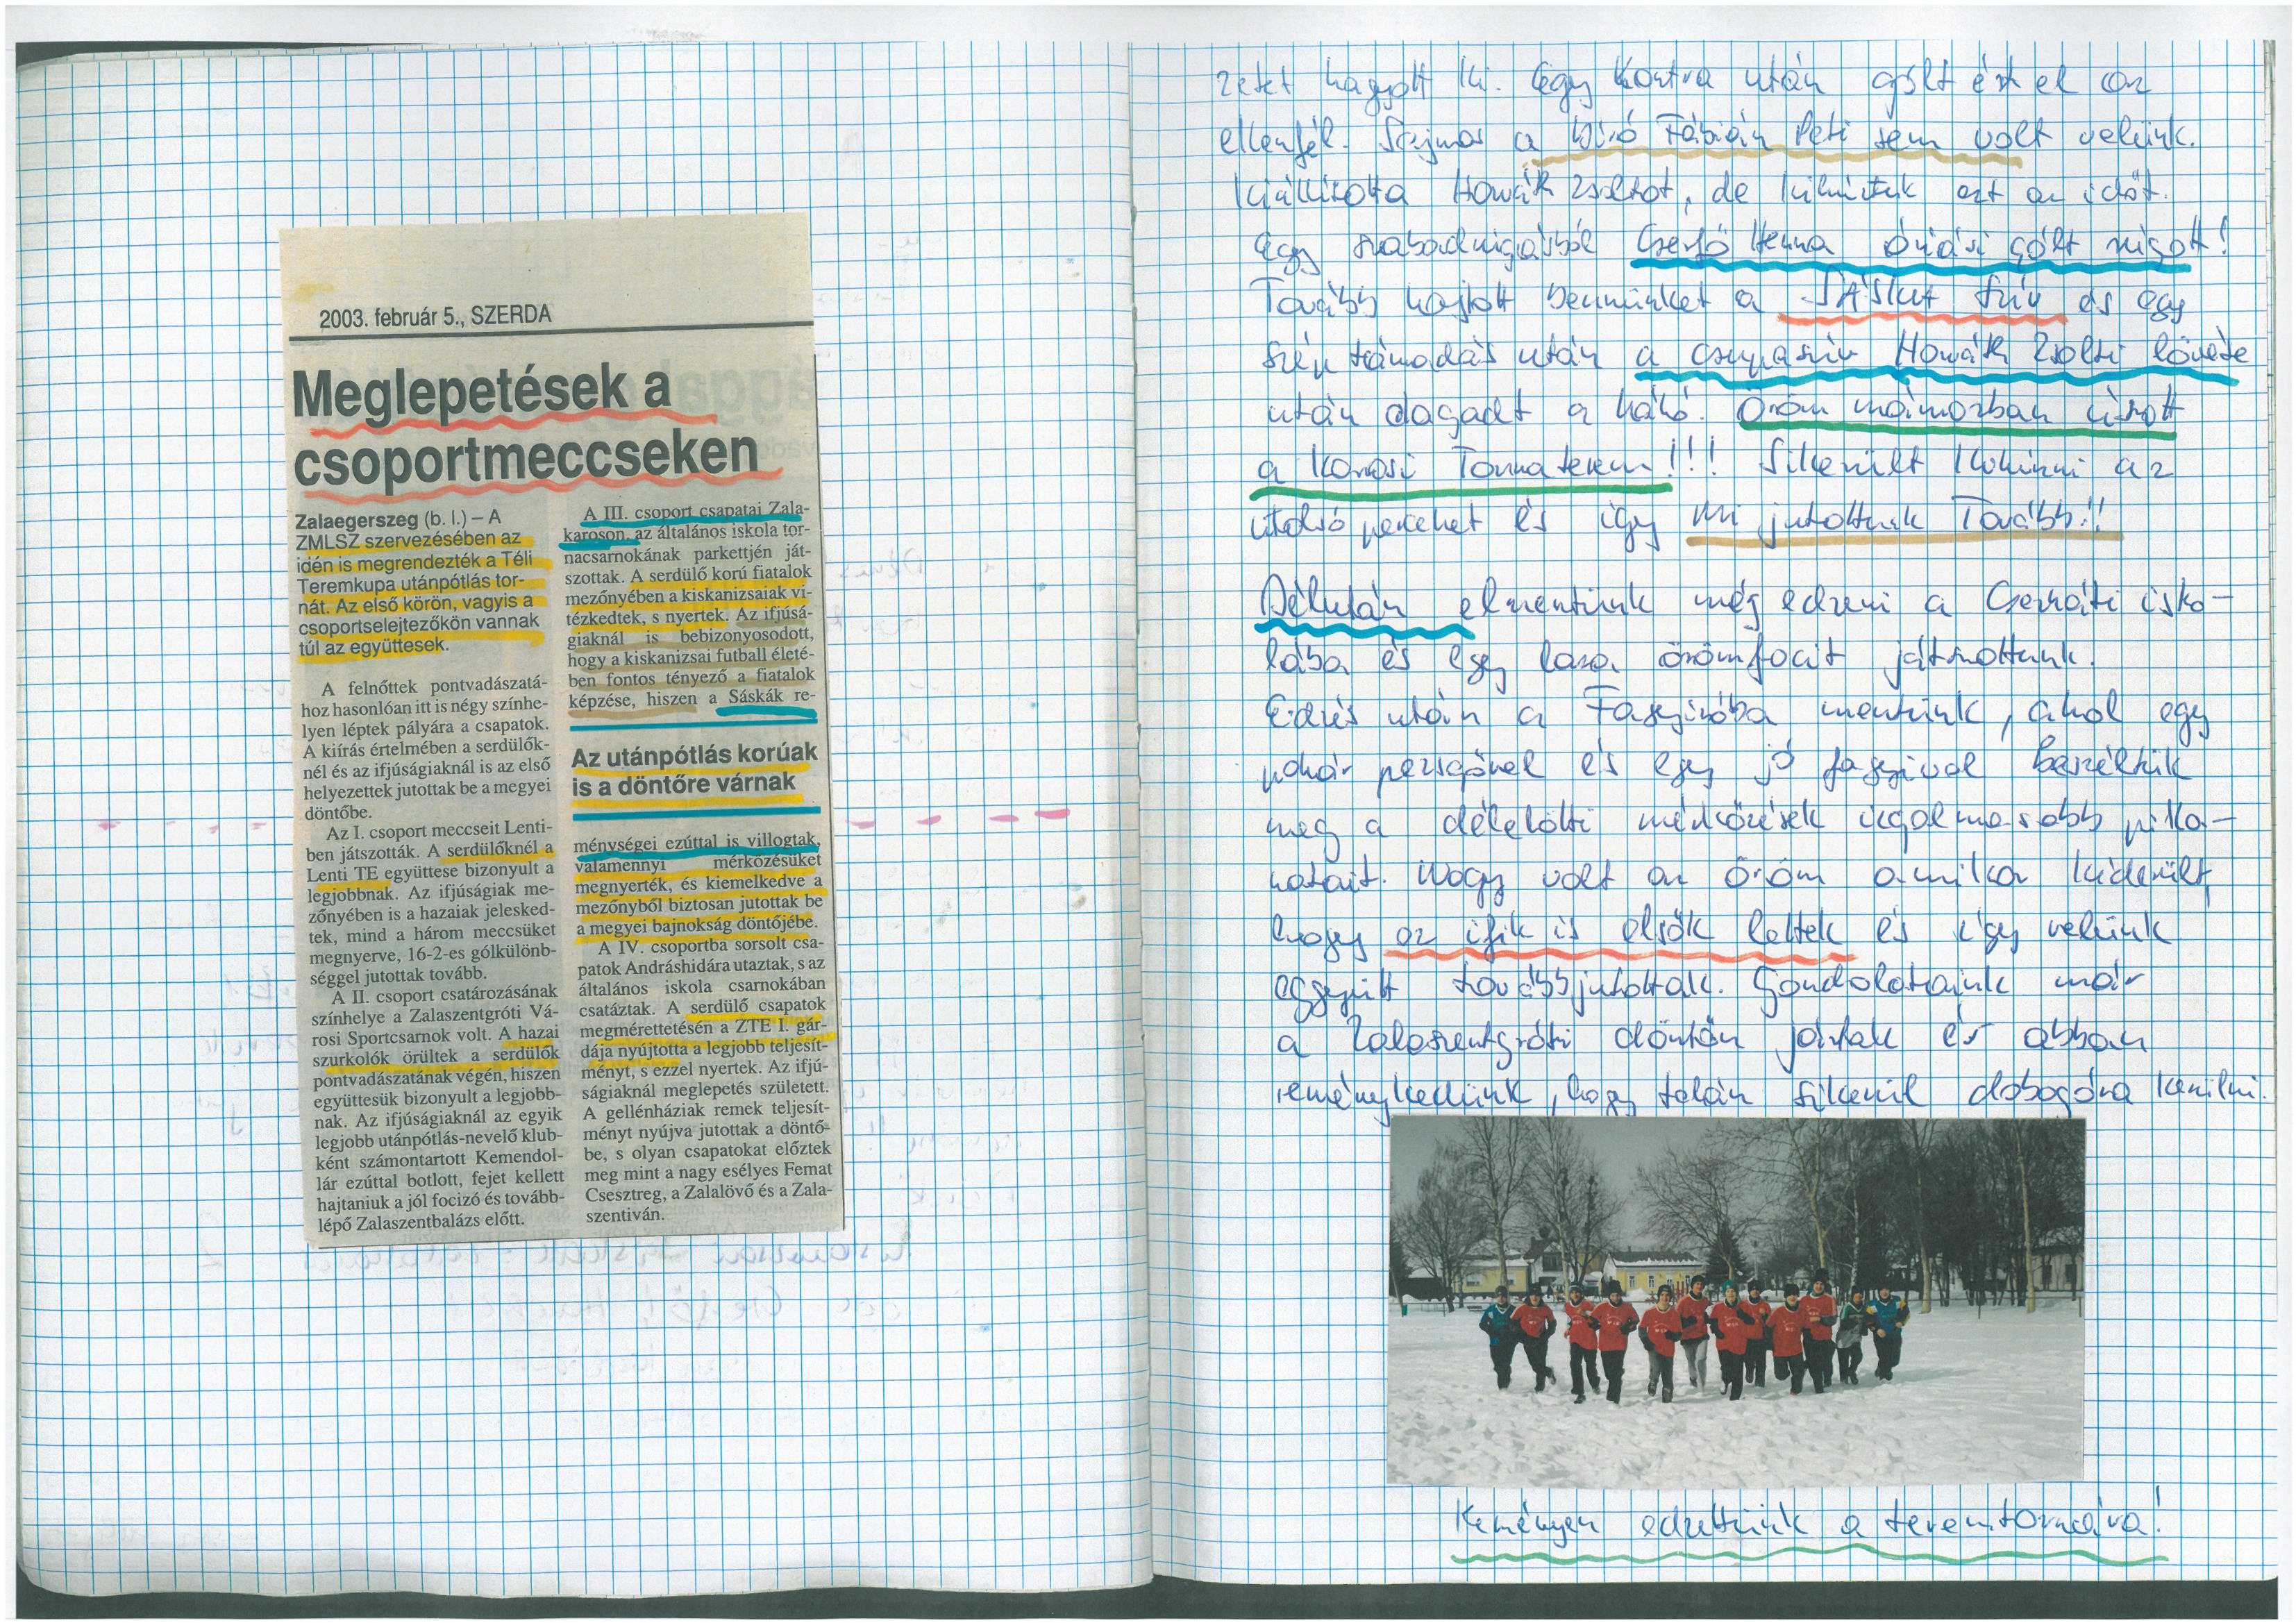 2003. február 5., SZERDA
Meglepetések a
csoportmeccseken
Zalaegerszeg (b. l.) – A
ZMLSZ szervezésében az
idén is megrendezték a Téli
Teremkupa utánpótlás tor-
nát. Az első körön, vagyis a
csoportselejtezőkön vannak
túl az együttesek.
A felnőttek pontvadászatá-
hoz hasonlóan itt is négy színhe-
lyen léptek pályára a csapatok.
A kiírás értelmében a serdülők-
nél és az ifjúságiaknál is az első
helyezettek jutottak be a megyei
döntőbe.
Az I. csoport meccseit Lenti-
ben játszották. A serdülőknél a
Lenti TE együttese bizonyult a
legjobbnak. Az ifjúságiak me-
zőnyében is a hazaiak jelesked-
tek, mind a három meccsüket
megnyerve, 16-2-es gólkülönb-
séggel jutottak tovább.
A II. csoport csatározásának
színhelye a Zalaszentgróti Vá-
rosi Sportcsarnok volt. A hazai
szurkolók örültek a serdülők
pontvadászatának végén, hiszen
együttesük bizonyult a legjobb-
nak. Az ifjúságiaknál az egyik
legjobb utánpótlás-nevelő klub-
ként számontartott Kemendol-
lár ezúttal botlott, fejet kellett
hajtaniuk a jól focizó és tovább-
lépő Zalaszentbalázs előtt.
A III. csoport csapatai Zala-
karoson, az általános iskola tor-
nacsarnokának parkettjén ját-
szottak. A serdülő korú fiatalok
mezőnyében a kiskanizsaiak vi-
tézkedtek, s nyertek. Az ifjúsá-
giaknál is bebizonyosodott,
hogy a kiskanizsai futball életé-
ben fontos tényező a fiatalok
képzése, hiszen a Sáskák re-
Az utánpótlás korúak
is a döntőre várnak
ménységei ezúttal is villogtak,
valamennyi mérkőzésüket
megnyerték, és kiemelkedve a
mezőnyből biztosan jutottak be
a megyei bajnokság döntőjébe.
A IV. csoportba sorsolt csa-
patok Andráshidára utaztak, s az
általános iskola csarnokában
csatáztak. A serdülő csapatok
megmérettetésén a ZTE I. gár-
dája nyújtotta a legjobb teljesít-
ményt, s ezzel nyertek. Az ifjú-
ságiaknál meglepetés született.
A gellénháziak remek teljesít-
ményt nyújva jutottak a döntő-
be, s olyan csapatokat előztek
meg mint a nagy esélyes Femat
Csesztreg, a Zalalövő és a Zala-
szentiván.
zetet hagyott ki. Egy kontra után gólt ért el az
ellenfél. Sajnos a bíró Fábián Peti sem volt velünk.
Kiállította Horváth Zsoltot, de kihúztuk ezt az időt.
Egy szabadrúgásból Cserfő Henna óriási gólt rúgott!
Tovább hajtott bennünket a SÁSKA szív és egy
szép támadás után a csupaszív Horváth Zsolti lövése
után dagadt a háló. Öröm mámorban úszott
a Karosi Tornaterem!!! Sikerült kihúzni az
utolsó perceket és így mi jutottunk Tovább!!
Délután elmentünk még edzeni a Cserháti isko-
lába és egy laza örömfocit játszottunk.
Edzés után a Fagyizóba mentünk, ahol egy
pohár pezsgővel és egy jó fagyival beszéltük
meg a délelőtti mérkőzések izgalmasabb pilla-
natait. Nagy volt az öröm amikor kiderült,
hogy az ifik is elsők lettek és így velünk
együtt továbbjutottak. Gondolataink már
a Zalaszentgróti döntőn jártak és abban
reménykedtünk, hogy talán sikerül dobogóra kerülni.
Keményen edzettünk a teremtornára!